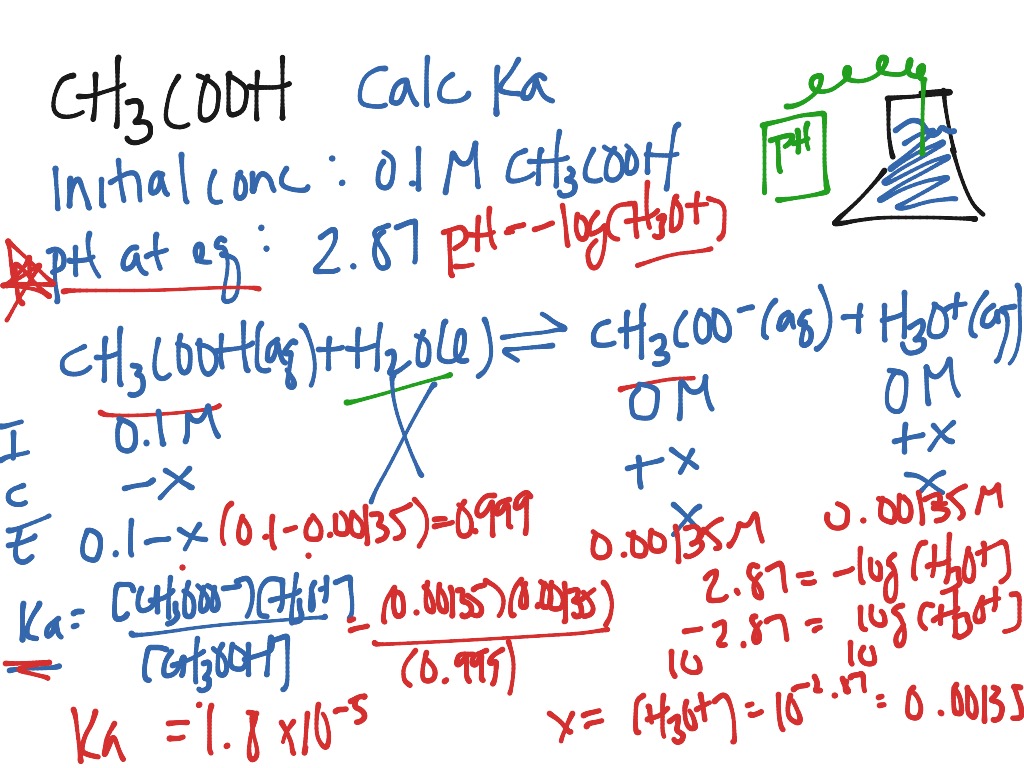 CH3COOH Calc Ka
pH
Initial conc : 0.1 M CH3COOH
pH at eq : 2.87 pH = -log(H3O+)
CH3COOH(aq) + H2O(l) ⇌ CH3COO-(aq) + H3O+(aq)
I 0.1 M 0 M 0 M
C -x +x +x
E 0.1-x (0.1-0.00135)=0.999 x x
0.00135 M 0.00135 M
2.87 = -log (H3O+)
Ka = [CH3COO-)(H3O+] / [CH3COOH] = (0.00135)(0.00135) / (0.999)
-2.87 = log (H3O+)
10 10
Ka = 1.8 x10-5
x = (H3O+) = 10-2.87 = 0.00135